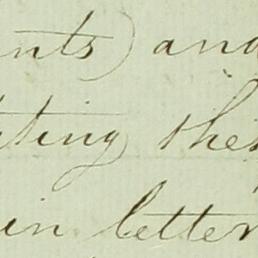 nts) and
ting the
in letter